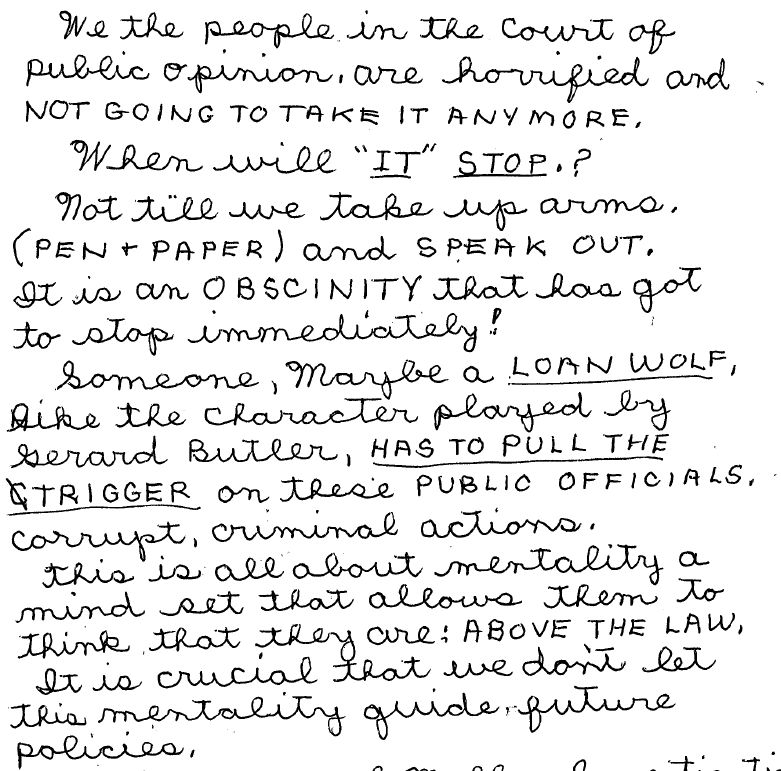 We the people in the Court of
public opinion, are horrified and
NOT GOING TO TAKE IT ANYMORE.
When will "IT" STOP.?
Not till we take up arms.
(PEN + PAPER) and SPEAK OUT.
It is an OBSCINITY that has got
to stop immediately!
Someone, Maybe a LOAN WOLF,
like the character played by
Gerard Butler, HAS TO PULL THE
TRIGGER on these PUBLIC OFFICIALS.
corrupt, criminal actions.
this is all about mentality a
mind set that allows them to
think that they are: ABOVE THE LAW.
It is crucial that we don't let
this mentality guide, future
policies.